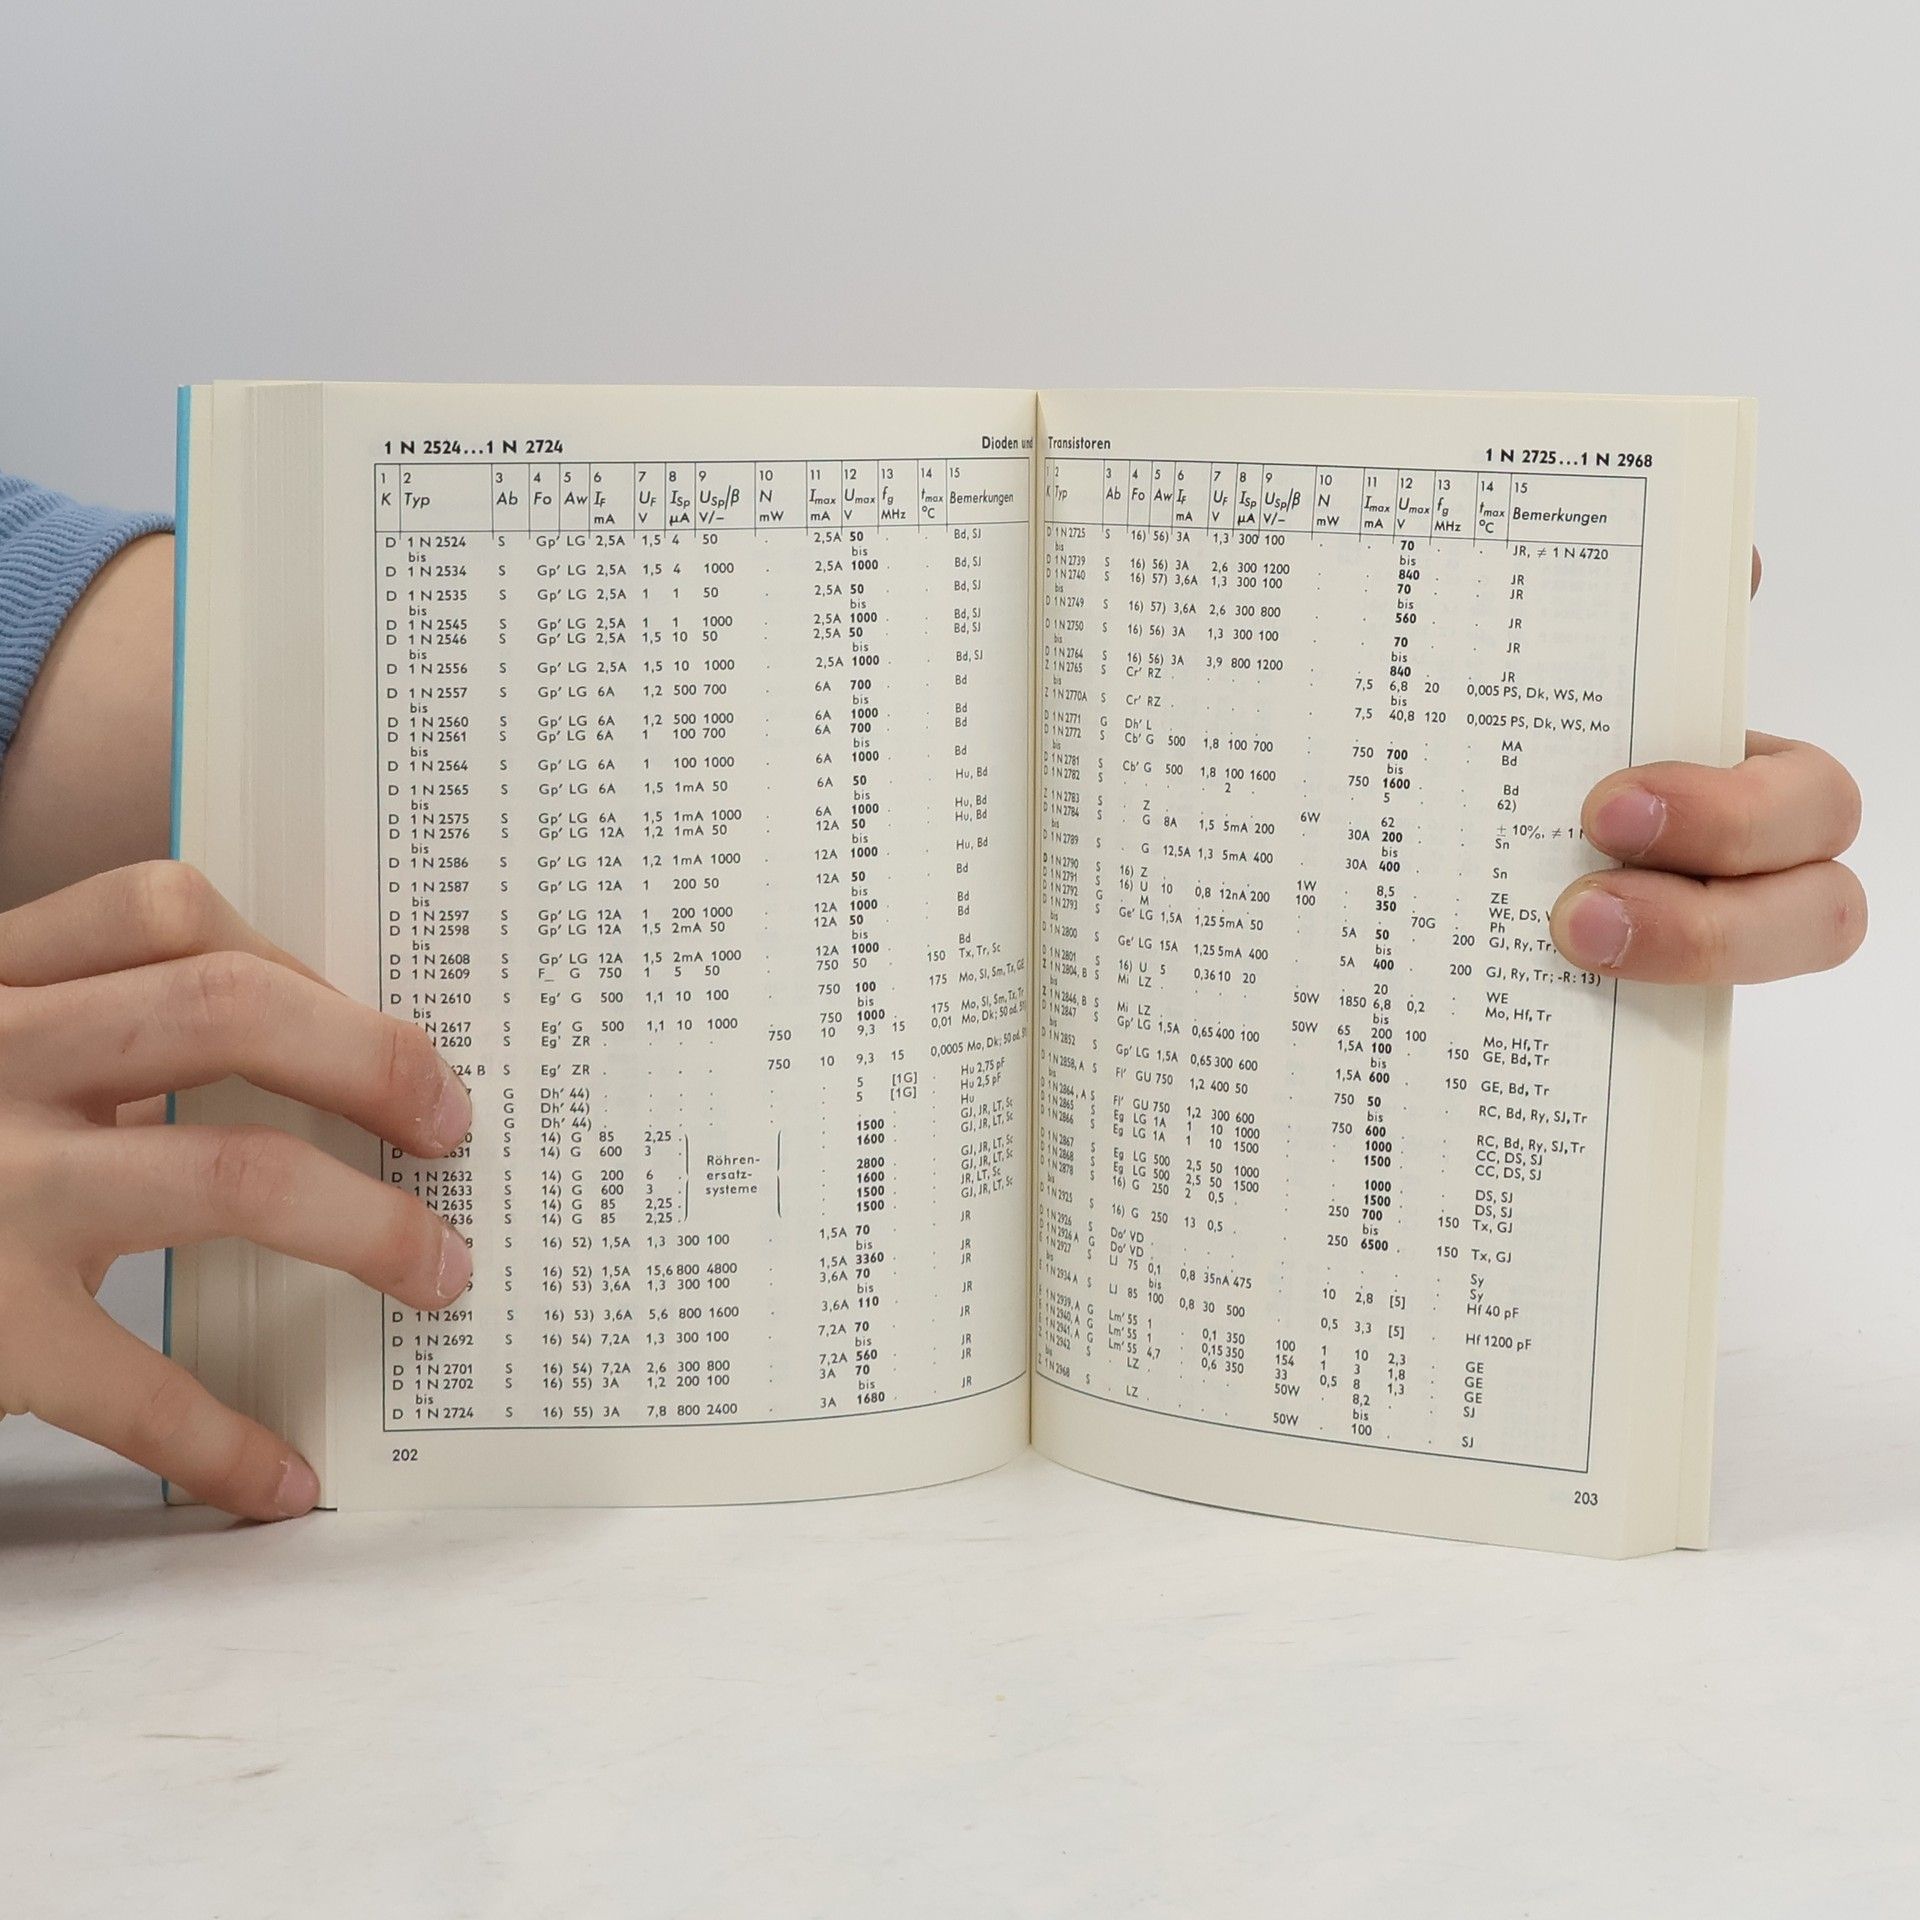 1 N 2524...1 N 2724
Dioden und
1 2 3 4 5 6 7 8 9 10 11 12 13 14 15
K Typ Ab Fo Aw IF UF ISp USp/β N Imax Umax fg tmax Bemerkungen
mA V µA V/– mW mA V MHz °C
D 1 N 2524 S Gp' LG 2,5A 1,5 4 50 . 2,5A 50 . . Bd, SJ
bis bis
D 1 N 2534 S Gp' LG 2,5A 1,5 4 1000 . 2,5A 1000 . . Bd, SJ
D 1 N 2535 S Gp' LG 2,5A 1 1 50 . 2,5A 50 . . Bd, SJ
bis bis
D 1 N 2545 S Gp' LG 2,5A 1 1 1000 . 2,5A 1000 . . Bd, SJ
D 1 N 2546 S Gp' LG 2,5A 1,5 10 50 . 2,5A 50 . . Bd, SJ
bis bis
D 1 N 2556 S Gp' LG 2,5A 1,5 10 1000 . 2,5A 1000 . . Bd, SJ
D 1 N 2557 S Gp' LG 6A 1,2 500 700 . 6A 700 . . Bd
bis bis
D 1 N 2560 S Gp' LG 6A 1,2 500 1000 . 6A 1000 . . Bd
D 1 N 2561 S Gp' LG 6A 1 100 700 . 6A 700 . . Bd
bis bis
D 1 N 2564 S Gp' LG 6A 1 100 1000 . 6A 1000 . . Bd
D 1 N 2565 S Gp' LG 6A 1,5 1mA 50 . 6A 50 . . Hu, Bd
bis bis
D 1 N 2575 S Gp' LG 6A 1,5 1mA 1000 . 6A 1000 . . Hu, Bd
D 1 N 2576 S Gp' LG 12A 1,2 1mA 50 . 12A 50 . . Hu, Bd
bis bis
D 1 N 2586 S Gp' LG 12A 1,2 1mA 1000 . 12A 1000 . . Hu, Bd
D 1 N 2587 S Gp' LG 12A 1 200 50 . 12A 50 . . Bd
bis bis
D 1 N 2597 S Gp' LG 12A 1 200 1000 . 12A 1000 . . Bd
D 1 N 2598 S Gp' LG 12A 1,5 2mA 50 . 12A 50 . . Bd
bis bis
D 1 N 2608 S Gp' LG 12A 1,5 2mA 1000 . 12A 1000 . . Bd
D 1 N 2609 S F_ G 750 1 5 50 . 750 50 . 150 Tx, Tr, Sc
D 1 N 2610 S Eg' G 500 1,1 10 100 . 750 100 . 175 Mo, SI, Sm, Tx, GE
bis bis
N 2617 S Eg' G 500 1,1 10 1000 . 750 1000 . 175 Mo, SI, Sm, Tx, Tr
2620 S Eg' ZR . . . . 750 10 9,3 15 0,01 Mo, Dk; 50 od.
24 B S Eg' ZR . . . . 750 10 9,3 15 0,0005 Mo, Dk; 50 od.
G Dh' 44) . . . . . . 5 [1G] . Hu 2,75 pF
G Dh' 44) . . . . . . 5 [1G] . Hu 2,5 pF
G Dh' 44) . . . . . . . . . Hu
S 14) G 85 2,25 . 1500 . . GJ, JR, LT, Sc
2631 S 14) G 600 3 . Röhren- 1600 . . GJ, JR, LT, Sc
D 1 N 2632 S 14) G 200 6 . ersatz- 2800 . . GJ, JR, LT, Sc
1 N 2633 S 14) G 600 3 . systeme 1600 . . GJ, JR, LT, Sc
2635 S 14) G 85 2,25 . 1500 . . JR, LT, Sc
2636 S 14) G 85 2,25 . 1500 . . GJ, JR, LT, Sc
S 16) 52) 1,5A 1,3 300 100 . 1,5A 70 . . JR
bis
S 16) 52) 1,5A 15,6 800 4800 . 1,5A 3360 . . JR
S 16) 53) 3,6A 1,3 300 100 . 3,6A 70 . . JR
bis
D 1 N 2691 S 16) 53) 3,6A 5,6 800 1600 . 3,6A 110 . . JR
D 1 N 2692 S 16) 54) 7,2A 1,3 300 100 . 7,2A 70 . . JR
bis bis
D 1 N 2701 S 16) 54) 7,2A 2,6 300 800 . 7,2A 560 . . JR
D 1 N 2702 S 16) 55) 3A 1,2 200 100 . 3A 70 . . JR
bis bis
D 1 N 2724 S 16) 55) 3A 7,8 800 2400 . 3A 1680 . . JR
202
Transistoren
1 N 2725...1 N 2968
1 2 3 4 5 6 7 8 9 10 11 12 13 14 15
K Typ Ab Fo Aw IF UF ISp USp/β N Imax Umax fg tmax Bemerkungen
mA V µA V/– mW mA V MHz °C
D 1 N 2725 S 16) 56) 3A 1,3 300 100 . . 70 . . JR, ≠ 1 N 4720
bis bis
D 1 N 2739 S 16) 56) 3A 2,6 300 1200 . . 840 . . JR
D 1 N 2740 S 16) 57) 3,6A 1,3 300 100 . . 70 . . JR
bis bis
D 1 N 2749 S 16) 57) 3,6A 2,6 300 800 . . 560 . . JR
D 1 N 2750 S 16) 56) 3A 1,3 300 100 . . 70 . . JR
bis bis
D 1 N 2764 S 16) 56) 3A 3,9 800 1200 . . 840 . . JR
Z 1 N 2765 S Cr' RZ . . . . . 7,5 6,8 20 0,005 PS, Dk, WS, Mo
bis bis
Z 1 N 2770A S Cr' RZ . . . . . 7,5 40,8 120 0,0025 PS, Dk, WS, Mo
D 1 N 2771 G Dh' L . . . . . . . . . MA
D 1 N 2772 S Cb' G 500 1,8 100 700 . 750 700 . . Bd
bis bis
D 1 N 2781 S Cb' G 500 1,8 100 1600 . 750 1600 . . Bd
D 1 N 2782 S . . . . 2 . . 5 . . 62)
Z 1 N 2783 S . Z . . . . 6W . 62 . . ± 10%, ≠ 1 N
D 1 N 2784 S . G 8A 1,5 5mA 200 . 30A 200 . . Sn
bis bis
D 1 N 2789 S . G 12,5A 1,3 5mA 400 . 30A 400 . . Sn
D 1 N 2790 S 16) Z . . . . 1W . 8,5 . . ZE
D 1 N 2791 S 16) U 10 0,8 12nA 200 100 . 350 . . WE, DS,
D 1 N 2792 G . M . . . . . . . 70G . Ph
D 1 N 2793 S Ge' LG 1,5A 1,25 5mA 50 . 5A 50 . 200 GJ, Ry, Tr;
bis bis
D 1 N 2800 S Ge' LG 15A 1,25 5mA 400 . 5A 400 . 200 GJ, Ry, Tr; -R: 13)
D 1 N 2801 S 16) U 5 0,36 10 20 . . 20 . . WE
Z 1 N 2804, B S Mi LZ . . . . 50W 1850 6,8 0,2 . Mo, Hf, Tr
bis bis
Z 1 N 2846, B S Mi LZ . . . . 50W 65 200 100 . Mo, Hf, Tr
D 1 N 2847 S Gp' LG 1,5A 0,65 400 100 . 1,5A 100 . 150 GE, Bd, Tr
bis bis
D 1 N 2852 S Gp' LG 1,5A 0,65 300 600 . 1,5A 600 . 150 GE, Bd, Tr
D 1 N 2858, A S Fl' GU 750 1,2 400 50 . 750 50 . . RC, Bd, Ry, SJ, Tr
bis bis
D 1 N 2864, A S Fl' GU 750 1,2 300 600 . 750 600 . . RC, Bd, Ry, SJ, Tr
D 1 N 2865 S Eg LG 1A 1 10 1000 . . 1000 . . CC, DS, SJ
D 1 N 2866 S Eg LG 1A 1 10 1500 . . 1500 . . CC, DS, SJ
D 1 N 2867 S Eg LG 500 2,5 50 1000 . . 1000 . . DS, SJ
D 1 N 2868 S Eg LG 500 2,5 50 1500 . . 1500 . . DS, SJ
D 1 N 2878 S 16) G 250 2 0,5 . . 250 700 . 150 Tx, GJ
bis bis
D 1 N 2925 S 16) G 250 13 0,5 . . 250 6500 . 150 Tx, GJ
D 1 N 2926 S Do' VD . . . . . . . . . Sy
D 1 N 2926 A G Do' VD . . . . . . . . . Sy
E 1 N 2927 S LJ 75 0,1 0,8 35nA 475 . 10 2,8 [5] . Hf 40 pF
bis bis
E 1 N 2934 A S LJ 85 100 0,8 30 500 . 0,5 3,3 [5] . Hf 1200 pF
E 1 N 2939, A G Lm' 55 1 . 0,1 350 100 1 10 2,3 . GE
E 1 N 2940, A G Lm' 55 1 . 0,15 350 154 1 3 1,8 . GE
E 1 N 2941, A G Lm' 55 4,7 . 0,6 350 33 0,5 8 1,3 . GE
Z 1 N 2942 S . LZ . . . . 50W . 8,2 . . SJ
bis
Z 1 N 2968 S . LZ . . . . 50W . 100 . . SJ
203